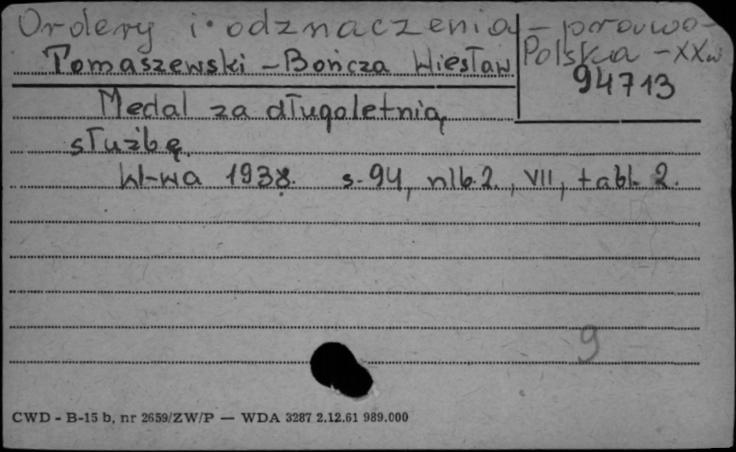 Ordery i odznaczenia – prawo –
Polska – XX w
Tomaszewski – Bończa Wiesław
94713
Medal za długoletnią
służbę
W-wa 1938. s. 94, nlb. 2., VII, tabl. 2.
9
CWD - B-15 b, nr 2659/ZW/P — WDA 3287 2.12.61 989.000